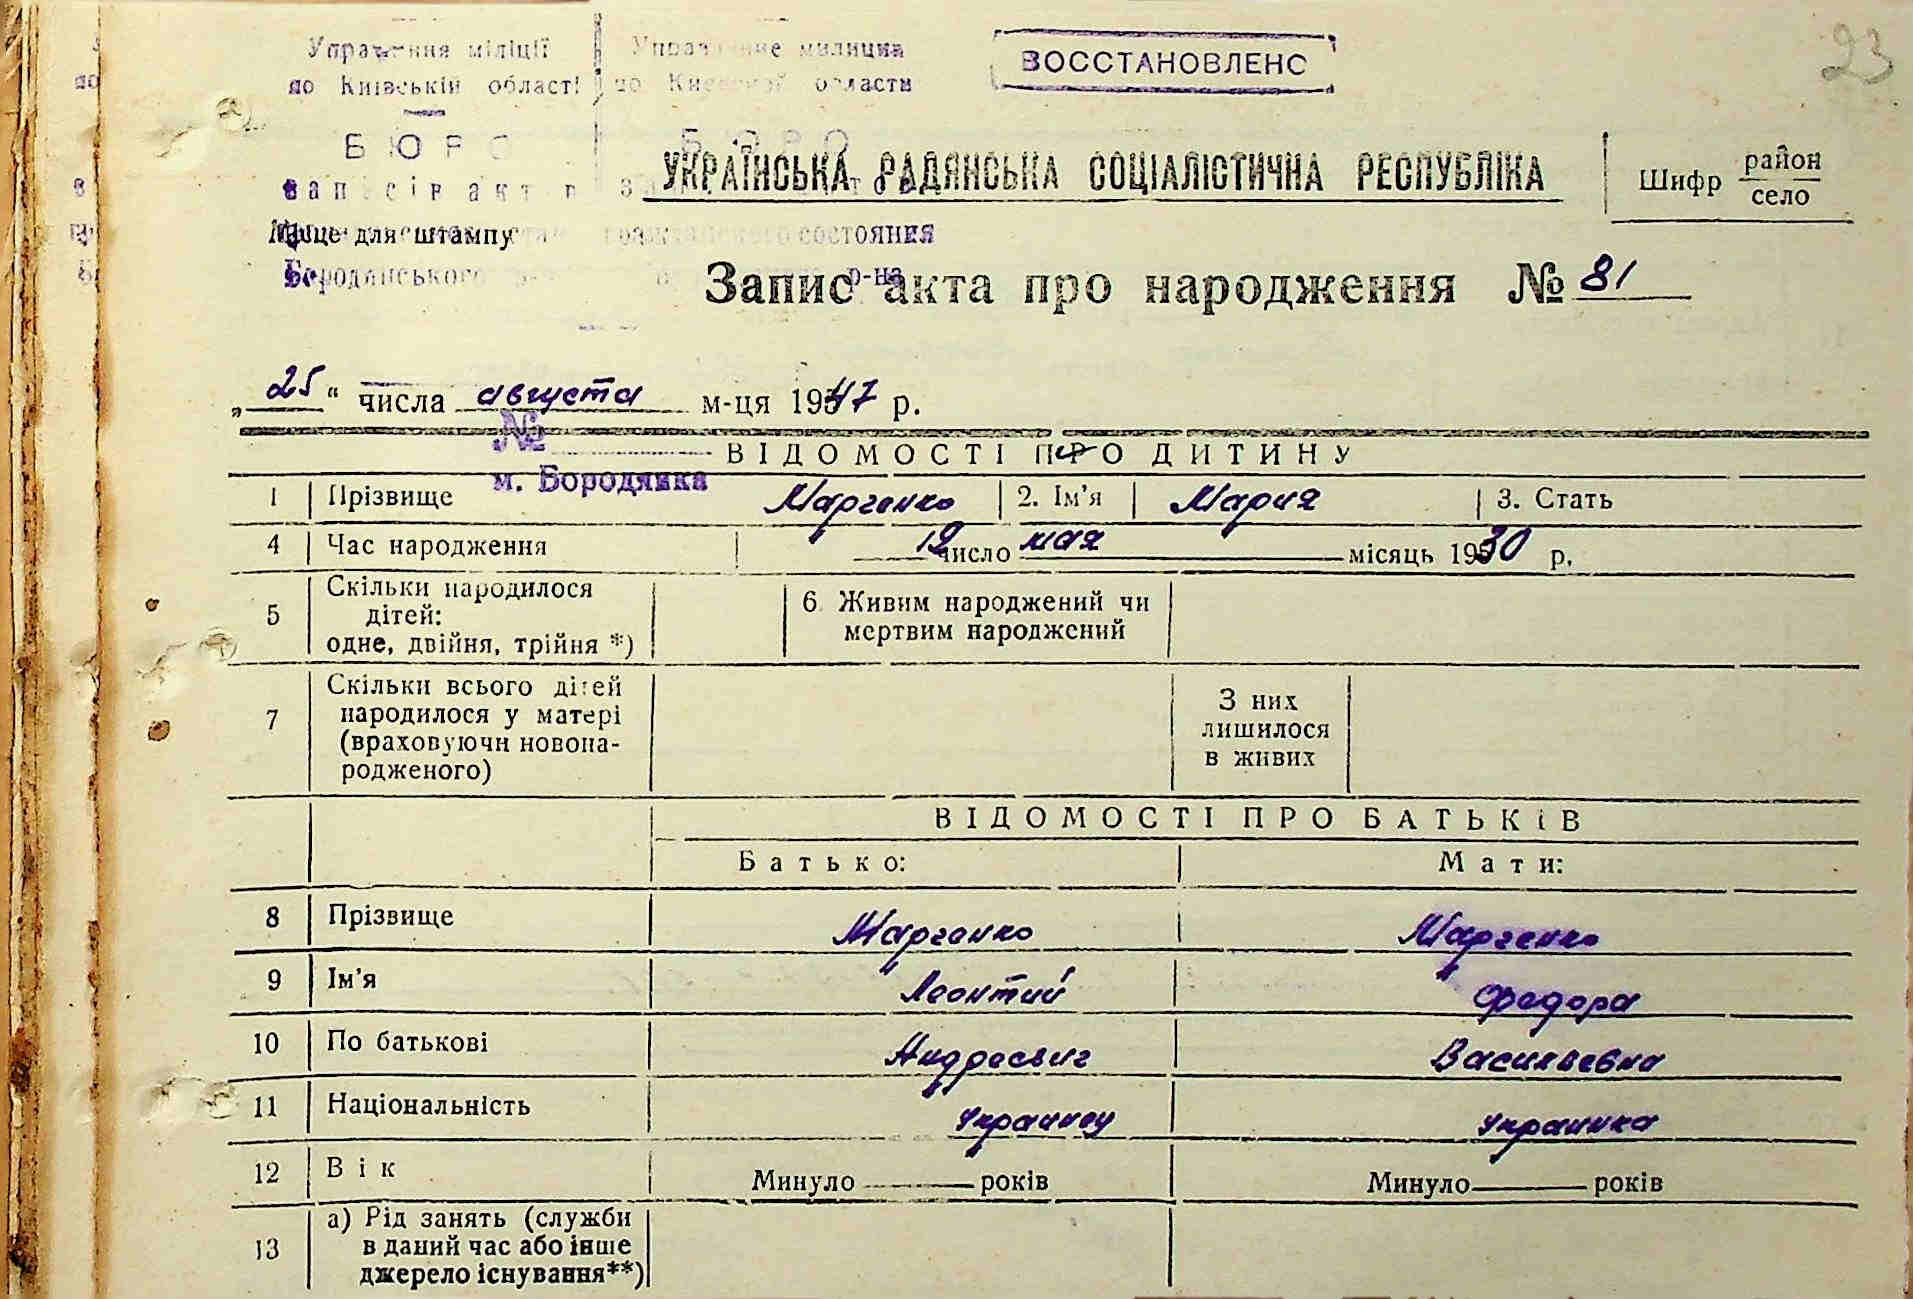 23
Управління міліції
по Київській області
БЮРО
записів актів
Управление милиции
по Киевской области
БЮРО
гражданского состояния
р-на
ВОССТАНОВЛЕНО
УКРАЇНСЬКА РАДЯНСЬКА СОЦІАЛІСТИЧНА РЕСПУБЛІКА
Шифр район
село
Місце для штампу
Бородянського
Запис акта про народження № 81
„25“ числа августа м-ця 1947 р.
№
м. Бородянка
ВІДОМОСТІ ПРО ДИТИНУ
1 Прізвище Марченко 2. Ім'я Мария 3. Стать
4 Час народження 12 число мая місяць 1930 р.
5 Скільки народилося
дітей:
одне, двійня, трійня *)
6 Живим народжений чи
мертвим народжений
7 Скільки всього дітей
народилося у матері
(враховуючи новона-
родженого)
З них
лишилося
в живих
ВІДОМОСТІ ПРО БАТЬКІВ
Батько: Мати:
8 Прізвище Марченко Марченко
9 Ім'я Леонтий Федора
10 По батькові Андреевич Васильевна
11 Національність Украинец Украинка
12 Вік Минуло року Минуло років
13 а) Рід занять (служби
в даний час або інше
джерело існування**)